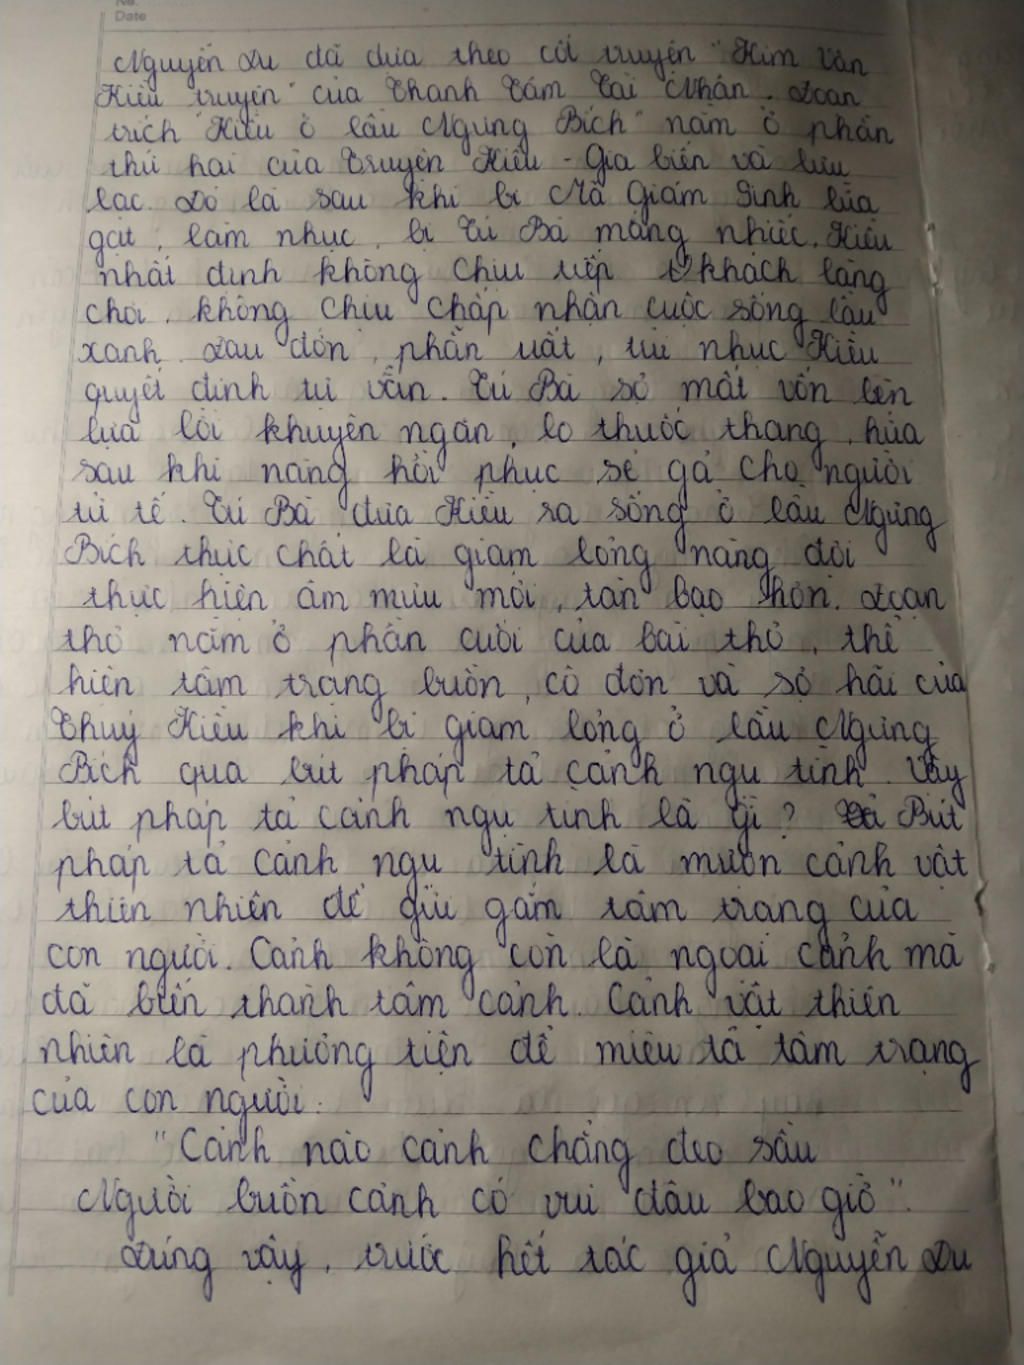 No.
Date
Nguyễn Du đã dựa theo cốt truyện "Kim Vân
Kiều truyện" của Thanh Tâm Tài Nhân. Đoạn
trích "Kiều ở lầu Ngưng Bích" nằm ở phần
thứ hai của Truyện Kiều - Gia biến và lưu
lạc. Đó là sau khi bị Mã Giám Sinh lừa
gạt, làm nhục, bị Tú Bà mắng nhiếc. Kiều
nhất định không chịu tiếp khách làng
chơi, không chịu chấp nhận cuộc sống lầu
xanh. Đau đớn, phẫn uất, tủi nhục Kiều
quyết định tự vẫn. Tú Bà sợ mất vốn liền
lựa lời khuyên ngăn, lo thuốc thang, hứa
sau khi nàng hồi phục sẽ gả cho người
tử tế. Tú Bà đưa Kiều ra sống ở lầu Ngưng
Bích thực chất là giam lỏng nàng đợi
thực hiện âm mưu mới, tàn bạo hơn. Đoạn
thơ nằm ở phần cuối của bài thơ, thể
hiện tâm trạng buồn, cô đơn và sợ hãi của
Thuý Kiều khi bị giam lỏng ở lầu Ngưng
Bích qua bút pháp tả cảnh ngụ tình. Vậy
bút pháp tả cảnh ngụ tình là gì? Bút
pháp tả cảnh ngụ tình là mượn cảnh vật
thiên nhiên để gửi gắm tâm trạng của
con người. Cảnh không còn là ngoại cảnh mà
đã biến thành tâm cảnh. Cảnh vật thiên
nhiên là phương tiện để miêu tả tâm trạng
của con người:
"Cảnh nào cảnh chẳng đeo sầu
Người buồn cảnh có vui đâu bao giờ".
Đúng vậy, trước hết tác giả Nguyễn Du